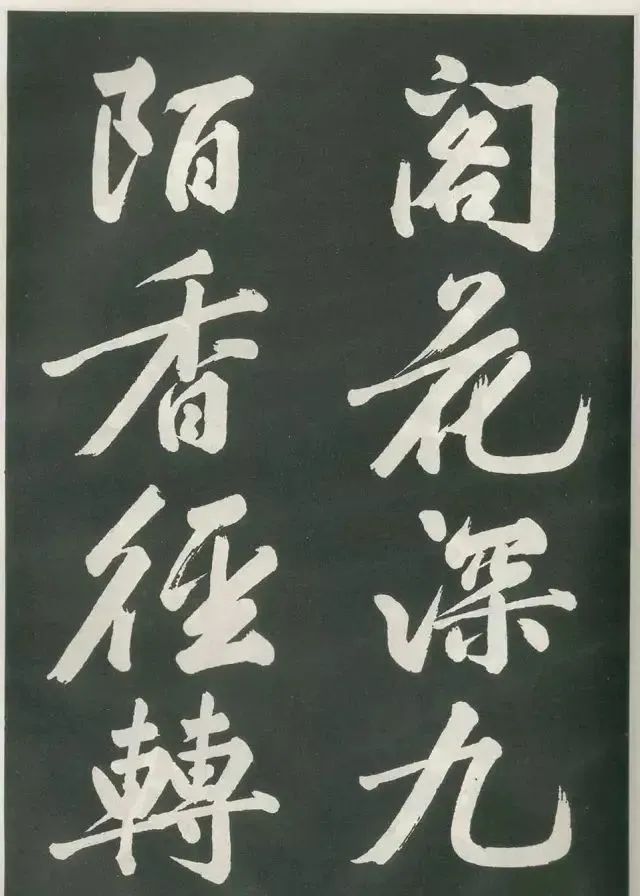 阁花深九
陌香徑轉